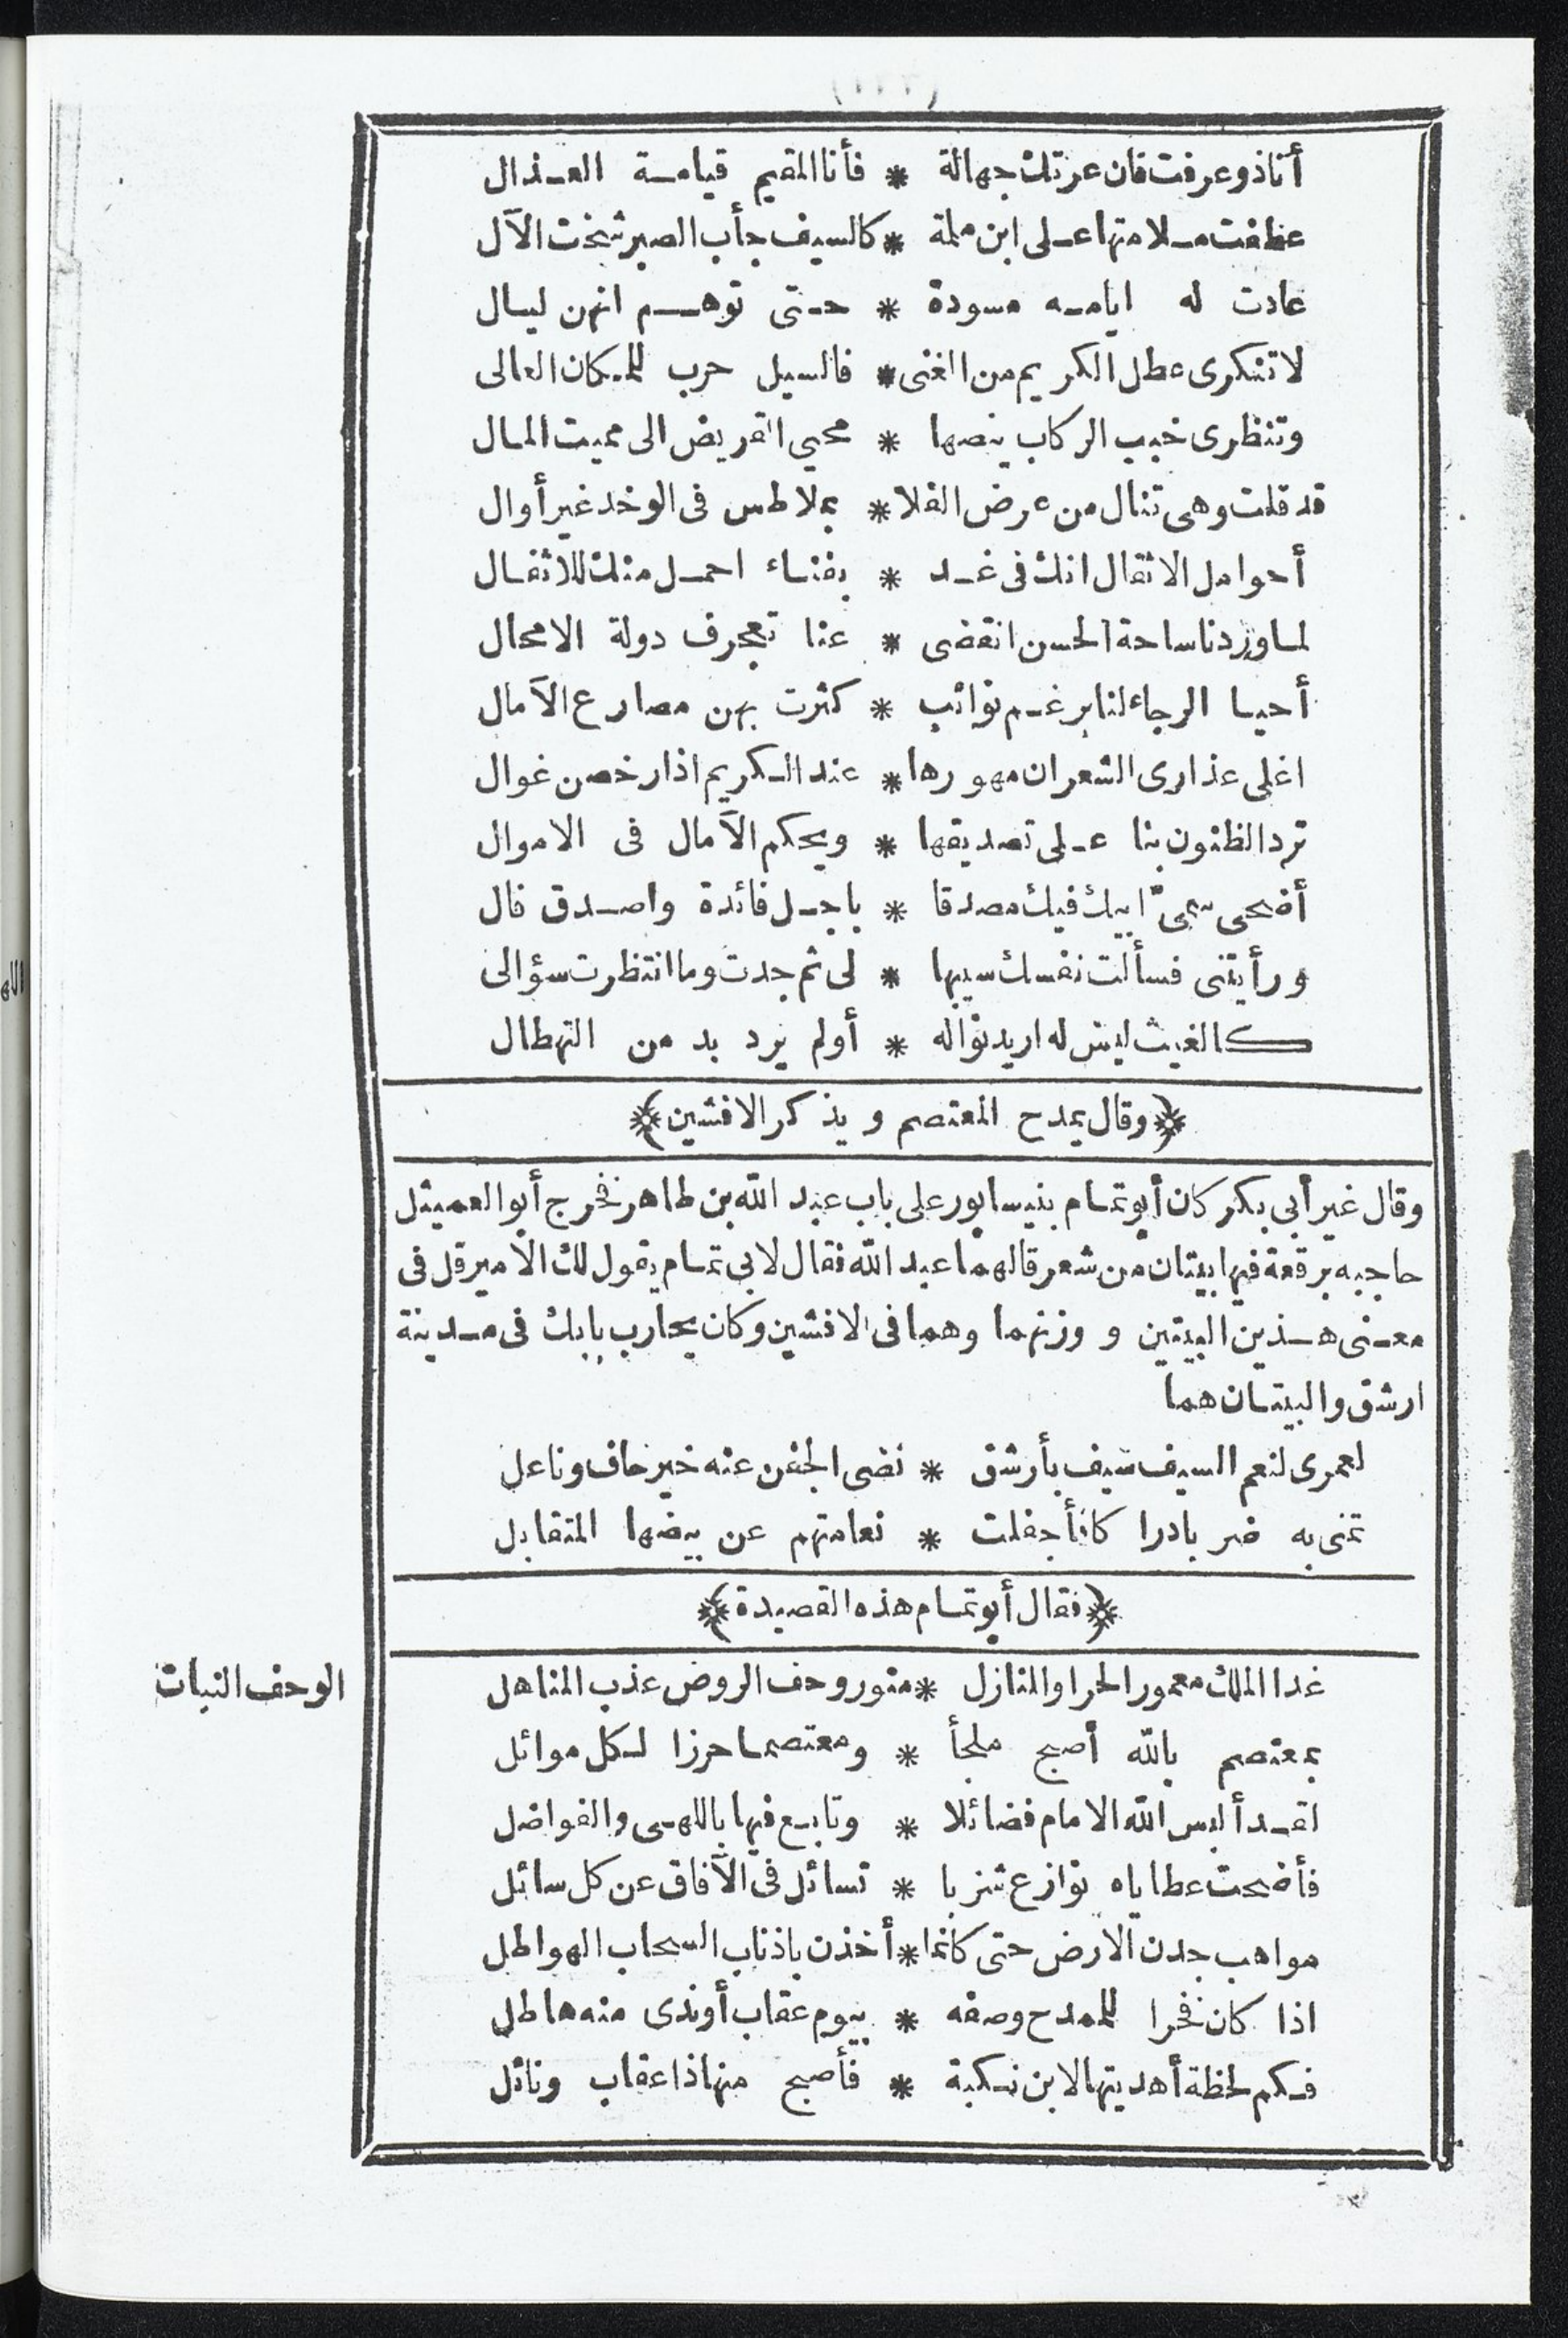 أنا ذو عرفت فان عرتك جهالة * فأنا المقيم قيامة العذال
عطفت ملامتها على ابن ملمة * كالسيف جأب الصبر شخت الآل
عادت له ايامه مسودة * حتى توهم انهن ليال
لا تنكرى عطل الكريم من الغنى * فالسيل حرب للمكان العالى
وتنظرى خبب الركاب ينصها * محيي القريض الى مميت المال
قد قلت وهى تنال من عرض الفلا * بملاطس فى الوخد غير أوال
أحوامل الاثقال انك فى غد * بفناء احمل منك للاثقال
لما وردنا ساحة الحسن انقضى * عنا تعجرف دولة الامحال
أحيا الرجاء لنا برغم نوائب * كثرت بهن مصارع الآمال
اغلى عذارى الشعران مهورها * عند الكريم اذا رخصن غوال
ترد الظنون بنا على تصديقها * ويحكم الآمال فى الاموال
أضحى سمىّ ابيك فيك مصدقا * باجل فائدة واصدق فال
ورأيتنى فسألت نفسك سيبها * لى ثم جدت وما انتظرت سؤالى
كالغيث ليس له اريد نواله * أولم يرد بد من التهطال
﴿وقال يمدح المعتصم و يذكر الافشين﴾
وقال غير أبى بكر كان أبو تمام بنيسابور على باب عبد الله بن طاهر فخرج أبو العميثل
حاجبه برقعة فيها بيتان من شعر قالهما عبد الله فقال لابى تمام يقول لك الامير قل فى
معنى هذين البيتين و وزنهما وهما فى الافشين وكان يحارب بابك فى مدينة
ارشق والبيتان هما
لعمرى لنعم السيف سيف بأرشق * نضى الجفن عنه خير حاف وناعل
تمنى به ضربا دراكا فأجفلت * نعامتهم عن بيضها المتقابل
﴿فقال أبو تمام هذه القصيدة﴾
غدا الملك معمور الحرا والمنازل * منور وحف الروض عذب المناهل
الوحف النبات
بمعتصم بالله أصبح ملجأ * ومعتصما حرزا لكل موائل
لقد ألبس الله الامام فضائلا * وتابع فيها باللهى والفواضل
فأضحت عطاياه نوازع شزبا * تسائل فى الآفاق عن كل سائل
مواهب جدن الارض حتى كانما * أخذن باذناب السحاب الهواطل
اذا كان فخرا للممدح وصفه * بيوم عقاب أوندى منه هاطل
فكم لحظة أهديتها لابن نكبة * فأصبح منها ذا عقاب ونائل